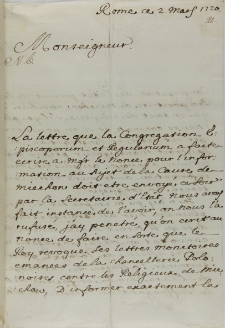 Rome ce 2. Mars 1720.
Monseigneur.
La lettre que la Congregation E-
piscoporum et Regularium a faite
ecrire a Mgr le Nonce pour l'infor-
mation au Sujet de la Cause de
Miechow doit etre envoyée
par la Secretairie d'Etat, nous avons
fait instance de l'avoir, on nous l'a
refuse, jay penetré qu'on ecrit au
nonce de faire en Sorte que le
Roy revoque Les lettres monitoires
emanées de la chancellerie Polo-
noises contre les Religieux de Mie-
chow, D'informer exactement la